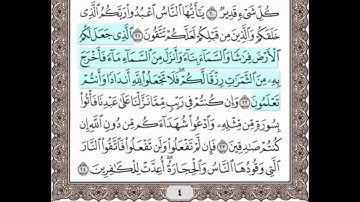 كُلِّ شَىْءٍ قَدِيرٌ ٢٠ يَٰٓأَيُّهَا ٱلنَّاسُ ٱعْبُدُوا۟ رَبَّكُمُ ٱلَّذِى
خَلَقَكُمْ وَٱلَّذِينَ مِن قَبْلِكُمْ لَعَلَّكُمْ تَتَّقُونَ ٢١ ٱلَّذِى جَعَلَ لَكُمُ
ٱلْأَرْضَ فِرَٰشًا وَٱلسَّمَآءَ بِنَآءً وَأَنزَلَ مِنَ ٱلسَّمَآءِ مَآءً فَأَخْرَجَ
بِهِۦ مِنَ ٱلثَّمَرَٰتِ رِزْقًا لَّكُمْ فَلَا تَجْعَلُوا۟ لِلَّهِ أَندَادًا وَأَنتُمْ
تَعْلَمُونَ ٢٢ وَإِن كُنتُمْ فِى رَيْبٍ مِّمَّا نَزَّلْنَا عَلَىٰ عَبْدِنَا فَأْتُوا۟
بِسُورَةٍ مِّن مِّثْلِهِۦ وَٱدْعُوا۟ شُهَدَآءَكُم مِّن دُونِ ٱللَّهِ إِن
كُنتُمْ صَٰدِقِينَ ٢٣ فَإِن لَّمْ تَفْعَلُوا۟ وَلَن تَفْعَلُوا۟ فَٱتَّقُوا۟ ٱلنَّارَ
ٱلَّتِى وَقُودُهَا ٱلنَّاسُ وَٱلْحِجَارَةُ أُعِدَّتْ لِلْكَٰفِرِينَ ٢٤
٤